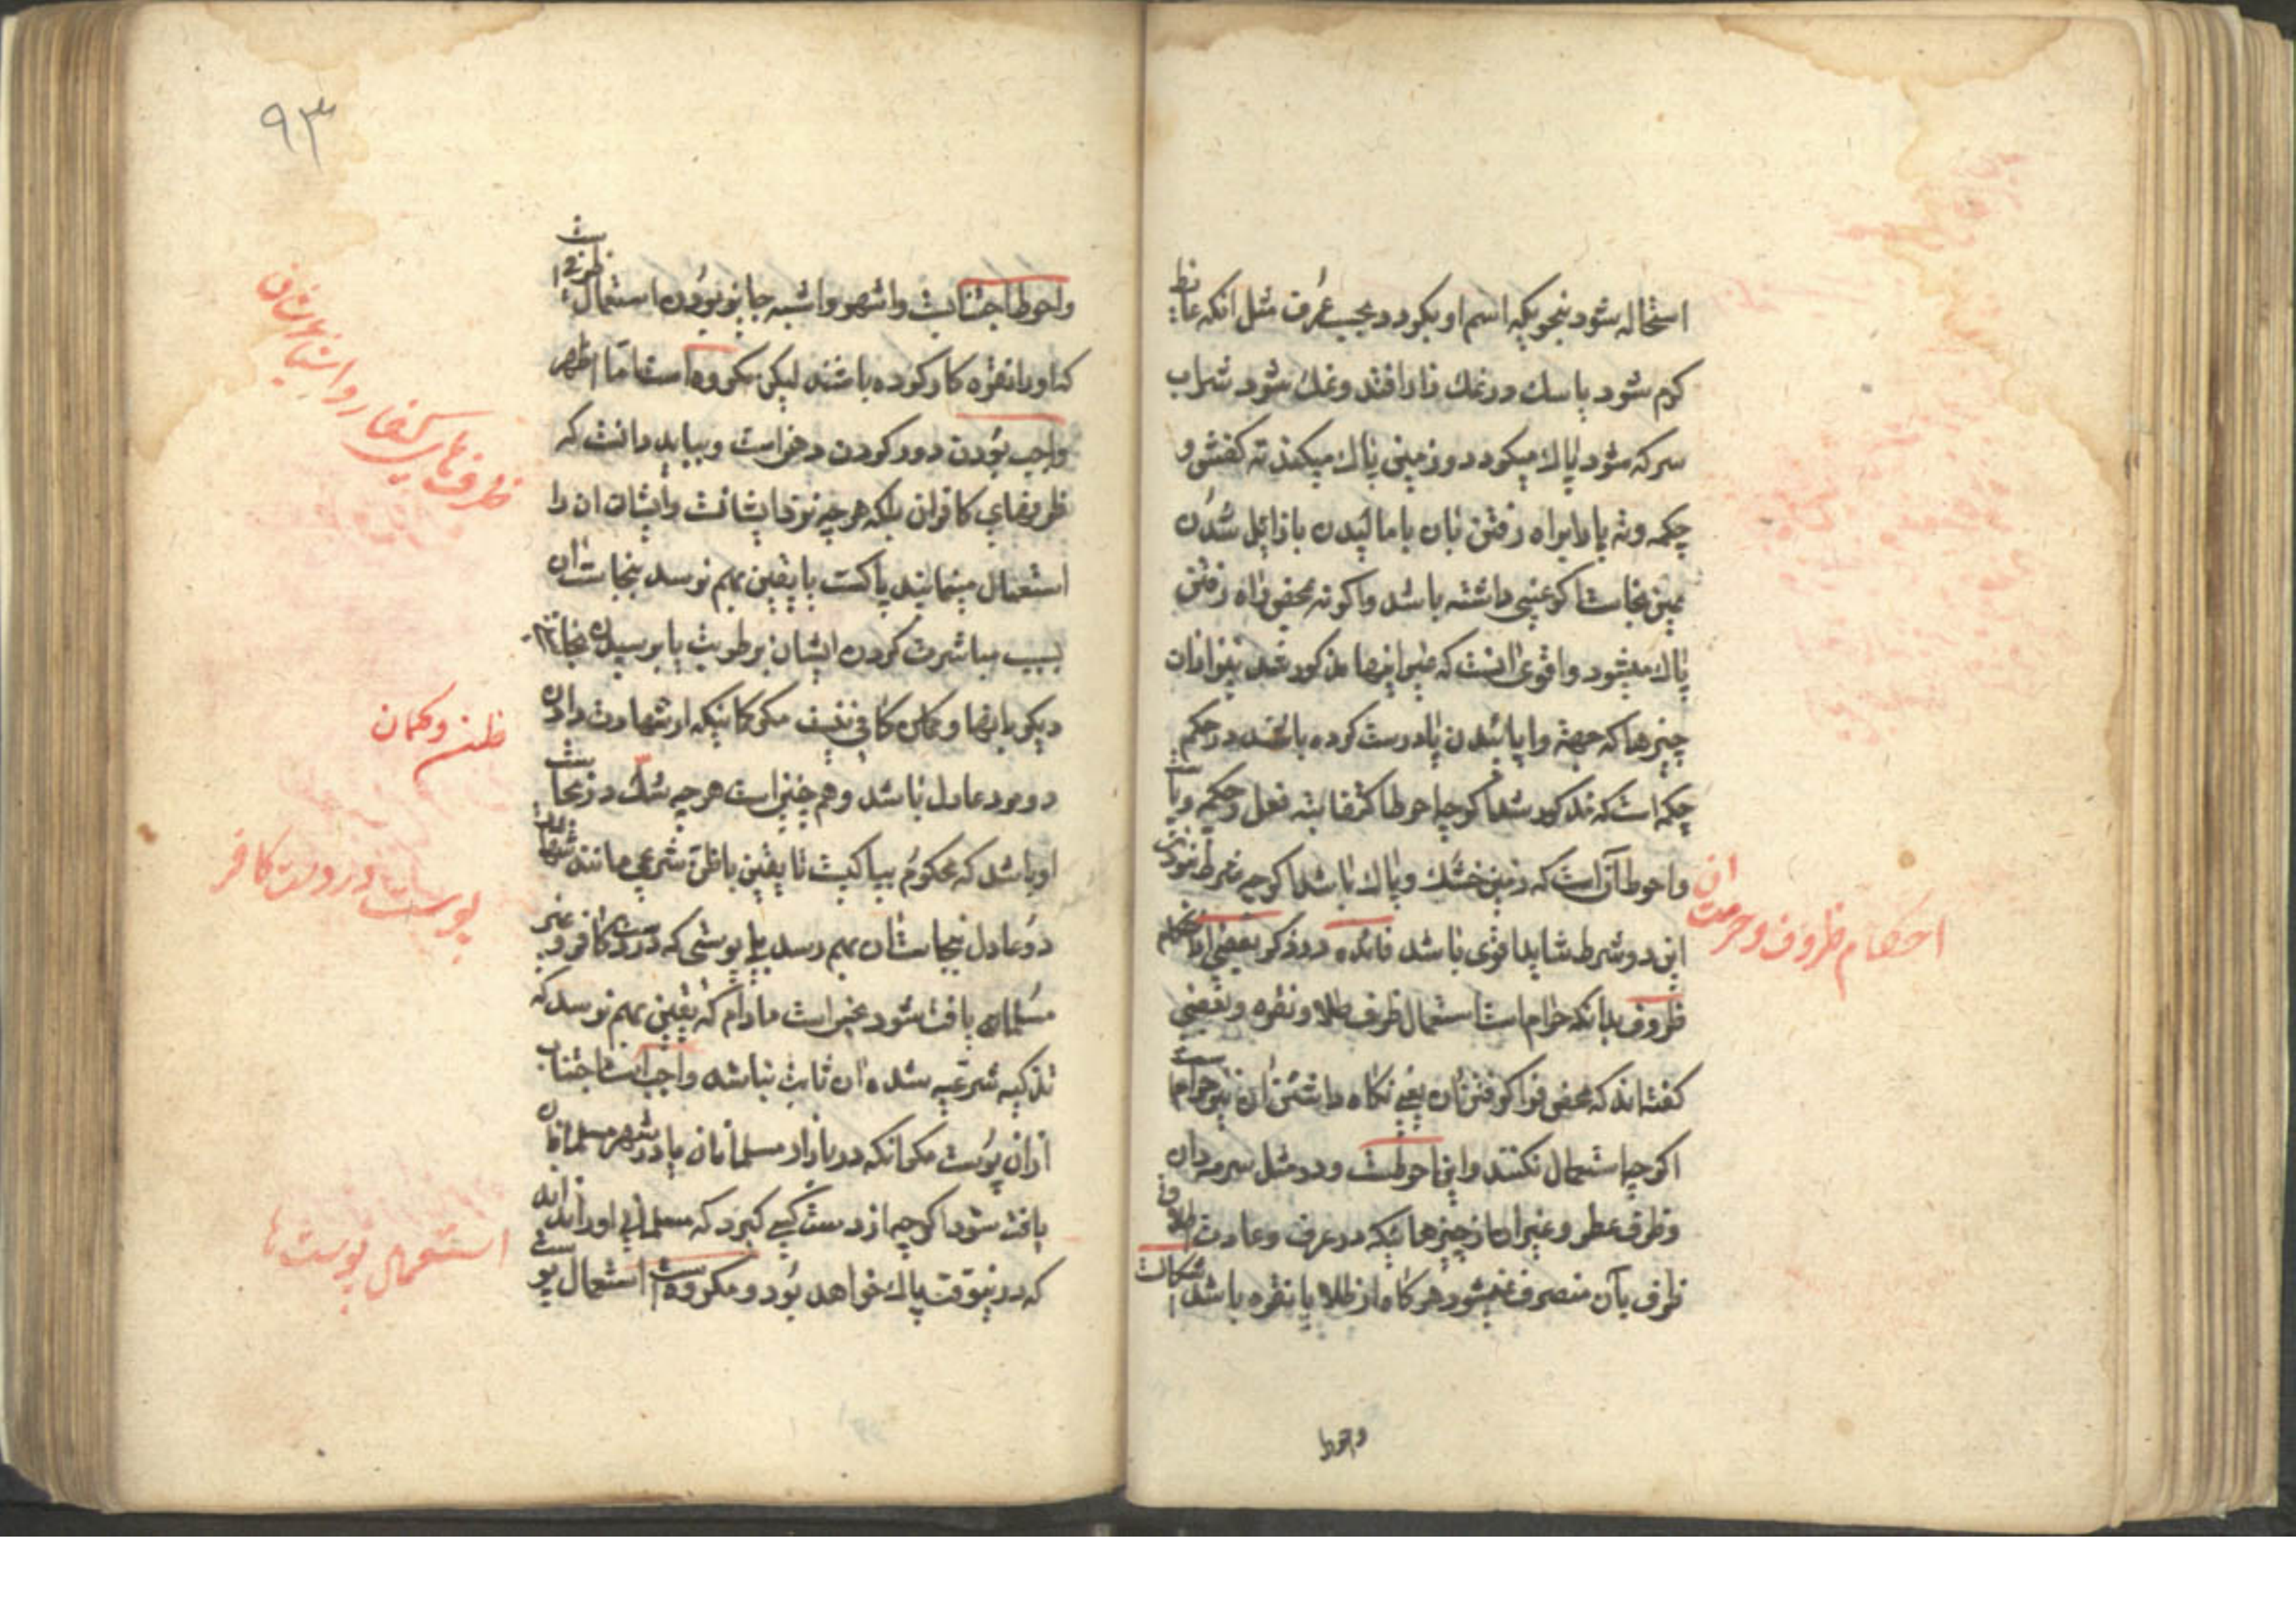 استحاله شود بنحویکه اسم او بگردد بحسب عُرف مثل انکه غائط
کرم شود یا سک در نمک زار افتد و نمک شود شراب
سرکه شود پاک میگردد و زمین پاک میکند ته کفش و
چکمه و ته پا را براه رفتن بان یا مالیدن با زایل شدن
عین نجاست اگر عینی داشته باشد و اگر نه بمحض راه رفتن
پاک میشود و اقوی انست که غیر اینها مذکور شد نیز از ان
چیزها که جهته وا پائیدن پا درست کرده باشند در حکم
چکمه است که مذکور شد اگر چه احوط اکتفا بته نعل و چکمه و پاست
و احوط آن است که زمین خشک و پاک باشد اگر چه شرط نبودن
این دو شرط شاید اقوی باشد فائده در ذکر بعضی از احکام
ظروف بدانکه حرام است استعمال ظرف طلا و نقره و بعضی
گفته اند که بمحض فرا گرفتن ان یعنی نگاه داشتن ان نیز حرام است
اگر چه استعمال نکنند و این احوطست و در مثل سرمه دان
و ظرف عطر و غیر انها از چیزهائیکه در عرف و عادت اطلاق
ظرف بآن منصرف نمیشود هرگاه از طلا یا نقره باشد اشکالست
احکام ظروف و حرمت ان
و احوط
۹۳
و احوط اجتنابست و اشهر و اشبه جایز بودن استعمال ظرفیست
که او را نقره کار کرده باشند لیکن مکروه است امّا اظهر
واجب بودن دور کردن دهن است و بباید دانست که
ظرفهای کافران بلکه هرچه نزد ایشانست و ایشان ان را
استعمال مینمایند پاکست تا یقین بهم نرسد بنجاست ان
بسبب مباشرت کردن ایشان برطوبت یا برسیدن نجاست
دیگر بانها و گمان کافی نیست مگر گمانیکه از شهادت دادن
دو مرد عادل باشد و هم چنین است هرچه شک در نجاست
او باشد که محکوم بپاکیست تا یقین یا ظن شرعی مانند شهادت
دو عادل بنجاست ان بهم رسد پس پوستی که در دست کافر و غیر
مسلمان یافت شود نجس است مادام که یقین بهم نرسد که
تذکیه شرعیه شده و ان ثابت نباشد واجب است اجتناب
از ان پوست مگر انکه در بازار مسلمانان یا در شهر مسلمانان
یافت شود اگر چه از دست کسی گیرد که مسلمانی او را نداند
که در نیوقت پاک خواهد بود و مکروه است استعمال پوست
ظرفهای کفار و اشیاء ایشان
ظن و گمان
پوست در دست کافر
استعمال پوست ها